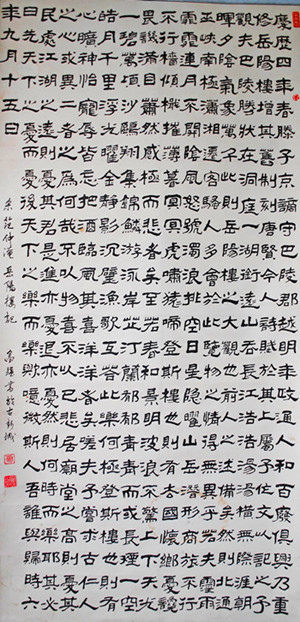 慶歷四年春滕子京謫守巴陵郡越明年政通人和百廢具興乃重
修岳陽樓增其舊制刻唐賢今人詩賦於其上屬予作文以記之予
觀夫巴陵勝狀在洞庭一湖銜遠山吞長江浩浩湯湯橫無際涯朝
暉夕陰氣象萬千此則岳陽樓之大觀也前人之述備矣然則北通
巫峽南極瀟湘遷客騷人多會於此覽物之情得無異乎若夫霪雨
霏霏連月不開陰風怒號濁浪排空日星隱曜山岳潛形商旅
不行檣傾楫摧薄暮冥冥虎嘯猿啼登斯樓也則有去國懷鄉憂讒
畏譏滿目蕭然感極而悲者矣至若春和景明波瀾不驚上下天光
一碧萬頃沙鷗翔集錦鱗游泳岸芷汀蘭郁郁青青而或長煙一空
皓月千里浮光躍金靜影沉璧漁歌互答此樂何極登斯樓也則有
心曠神怡寵辱皆忘把酒臨風其喜洋洋者矣嗟夫予嘗求古仁人
之心或異二者之為何哉不以物喜不以己悲居廟堂之高則憂其
民處江湖之遠則憂其君是進亦憂退亦憂然則何時而樂耶其必
曰先天下之憂而憂後天下之樂而樂歟噫微斯人吾誰與歸時六
年九月十五日
录范仲淹岳陽樓記
書於古彭城